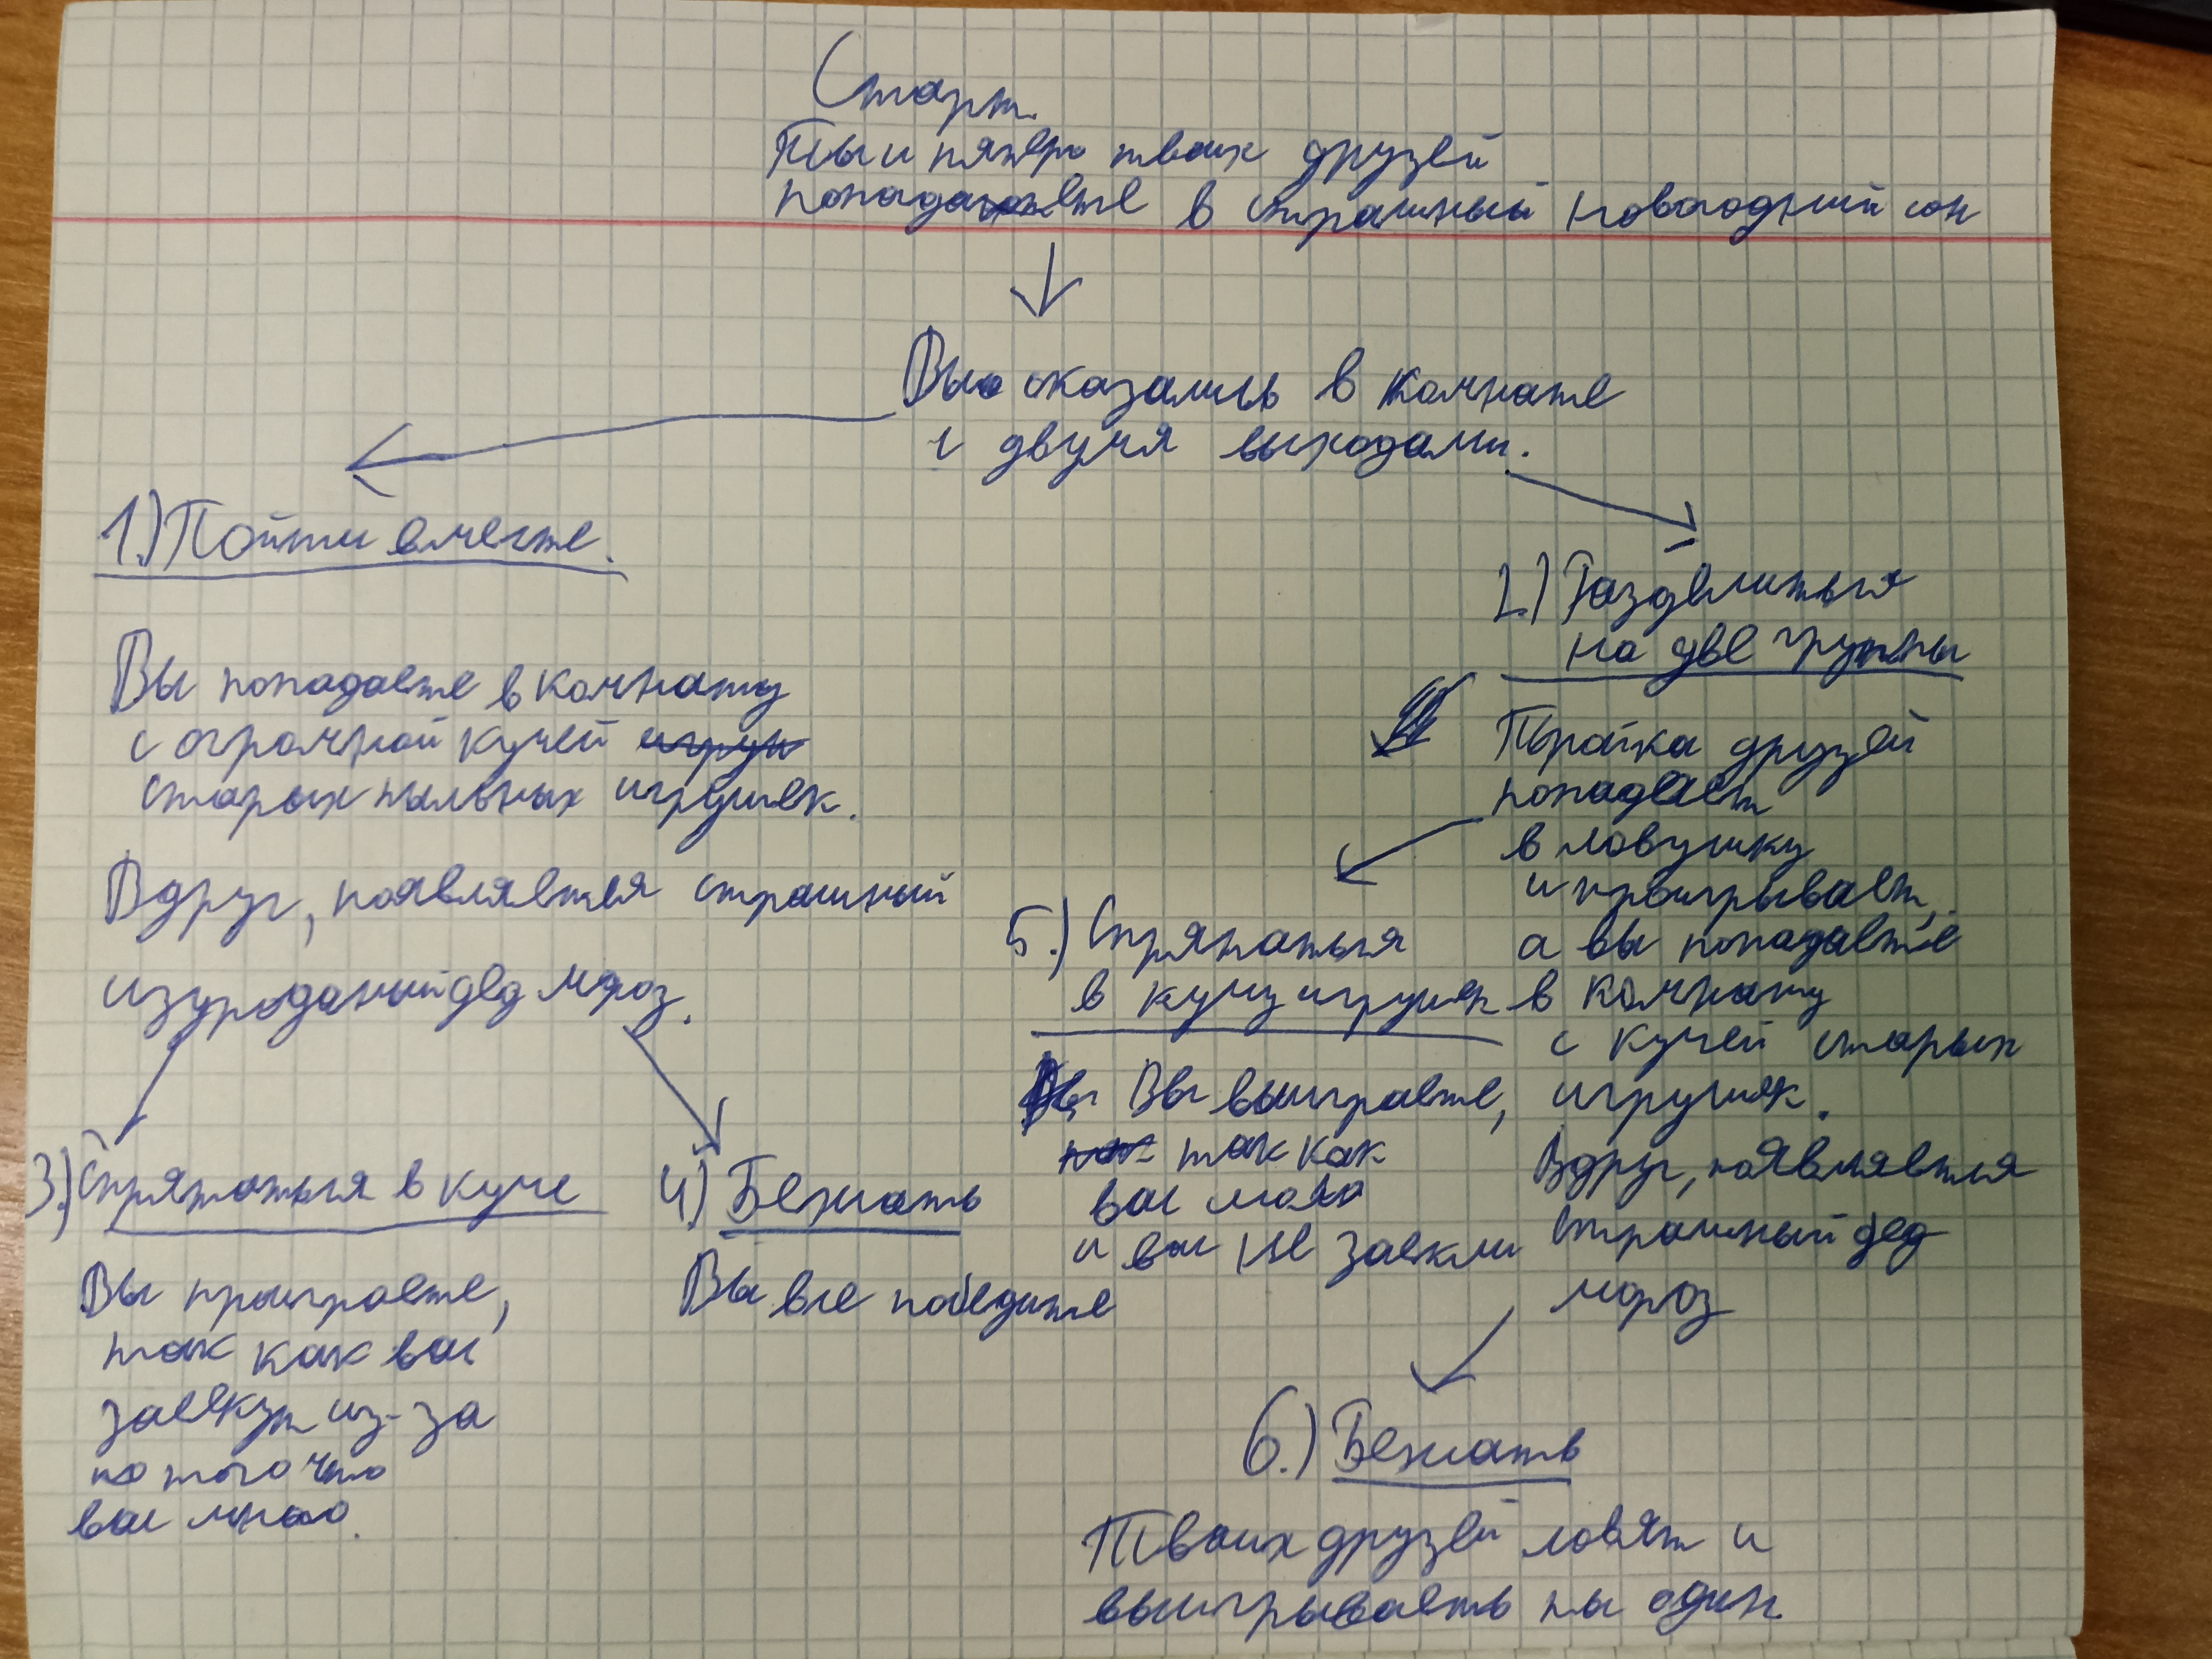 Старт.
Ты и пятеро твоих друзей
попадаете в страшный новогодний сон
Вы оказались в комнате
с двумя выходами.
1.) Пойти вместе.
Вы попадаете в комнату
с огромной кучей игруш
старых пыльных игрушек.
Вдруг, появляется страшный
изуроданый дед мороз.
3.) Спрятаться в куче
Вы проиграете,
так как вас
засекут из-за
того что
вас много.
4) Бежать
Вы все победите
2.) Разделиться
на две группы
Тройка друзей
попадает
в ловушку
и проигрывает,
а вы попадаете
в комнату
с кучей старых
игрушек.
Вдруг, появляется
страшный дед
мороз
5.) Спрятаться
в кучу игрушек
Вы выиграете,
так как
вас мало
и вас не засекли
6.) Бежать
Твоих друзей ловят и
выигрываеть ты один.